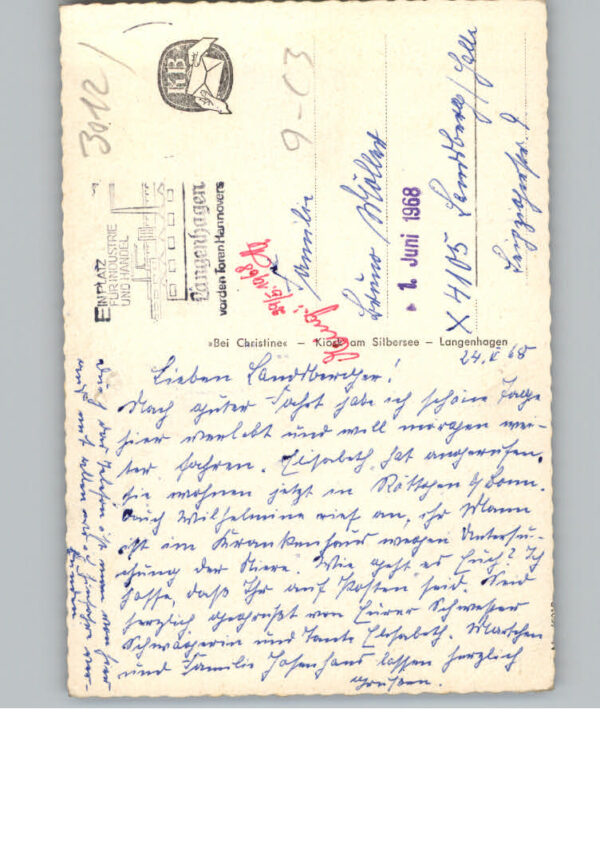 3012
KB
9-03
EIN PLATZ
FÜR INDUSTRIE
UND HANDEL
Langenhagen
vor den Toren Hannovers
29/5.1968
Familie
Bruno Müller
1. Juni 1968
X 4105 Landsberg/Halle
Leipzigerstr. 9
»Bei Christine« – Kiosk am Silbersee – Langenhagen
24. V 68
Lieben Landsberger!
Nach guter Fahrt habe ich schöne Tage
hier verlebt und will morgen wei-
ter fahren. Elisabeth hat angerufen,
sie wohnen jetzt in Röttgen b/Bonn.
Auch Wilhelmine rief an, ihr Mann
ist im Krankenhaus wegen Untersu-
chung der Niere. Wie geht es Euch? Ich
hoffe, daß Ihr auf Posten seid. Seid
herzlich gegrüßt von Eurer Schwester
Schwägerin und Tante Elisabeth.
und Familie lassen herzlich
grüßen.
durch das Telefon ist man von hier
und mit allen